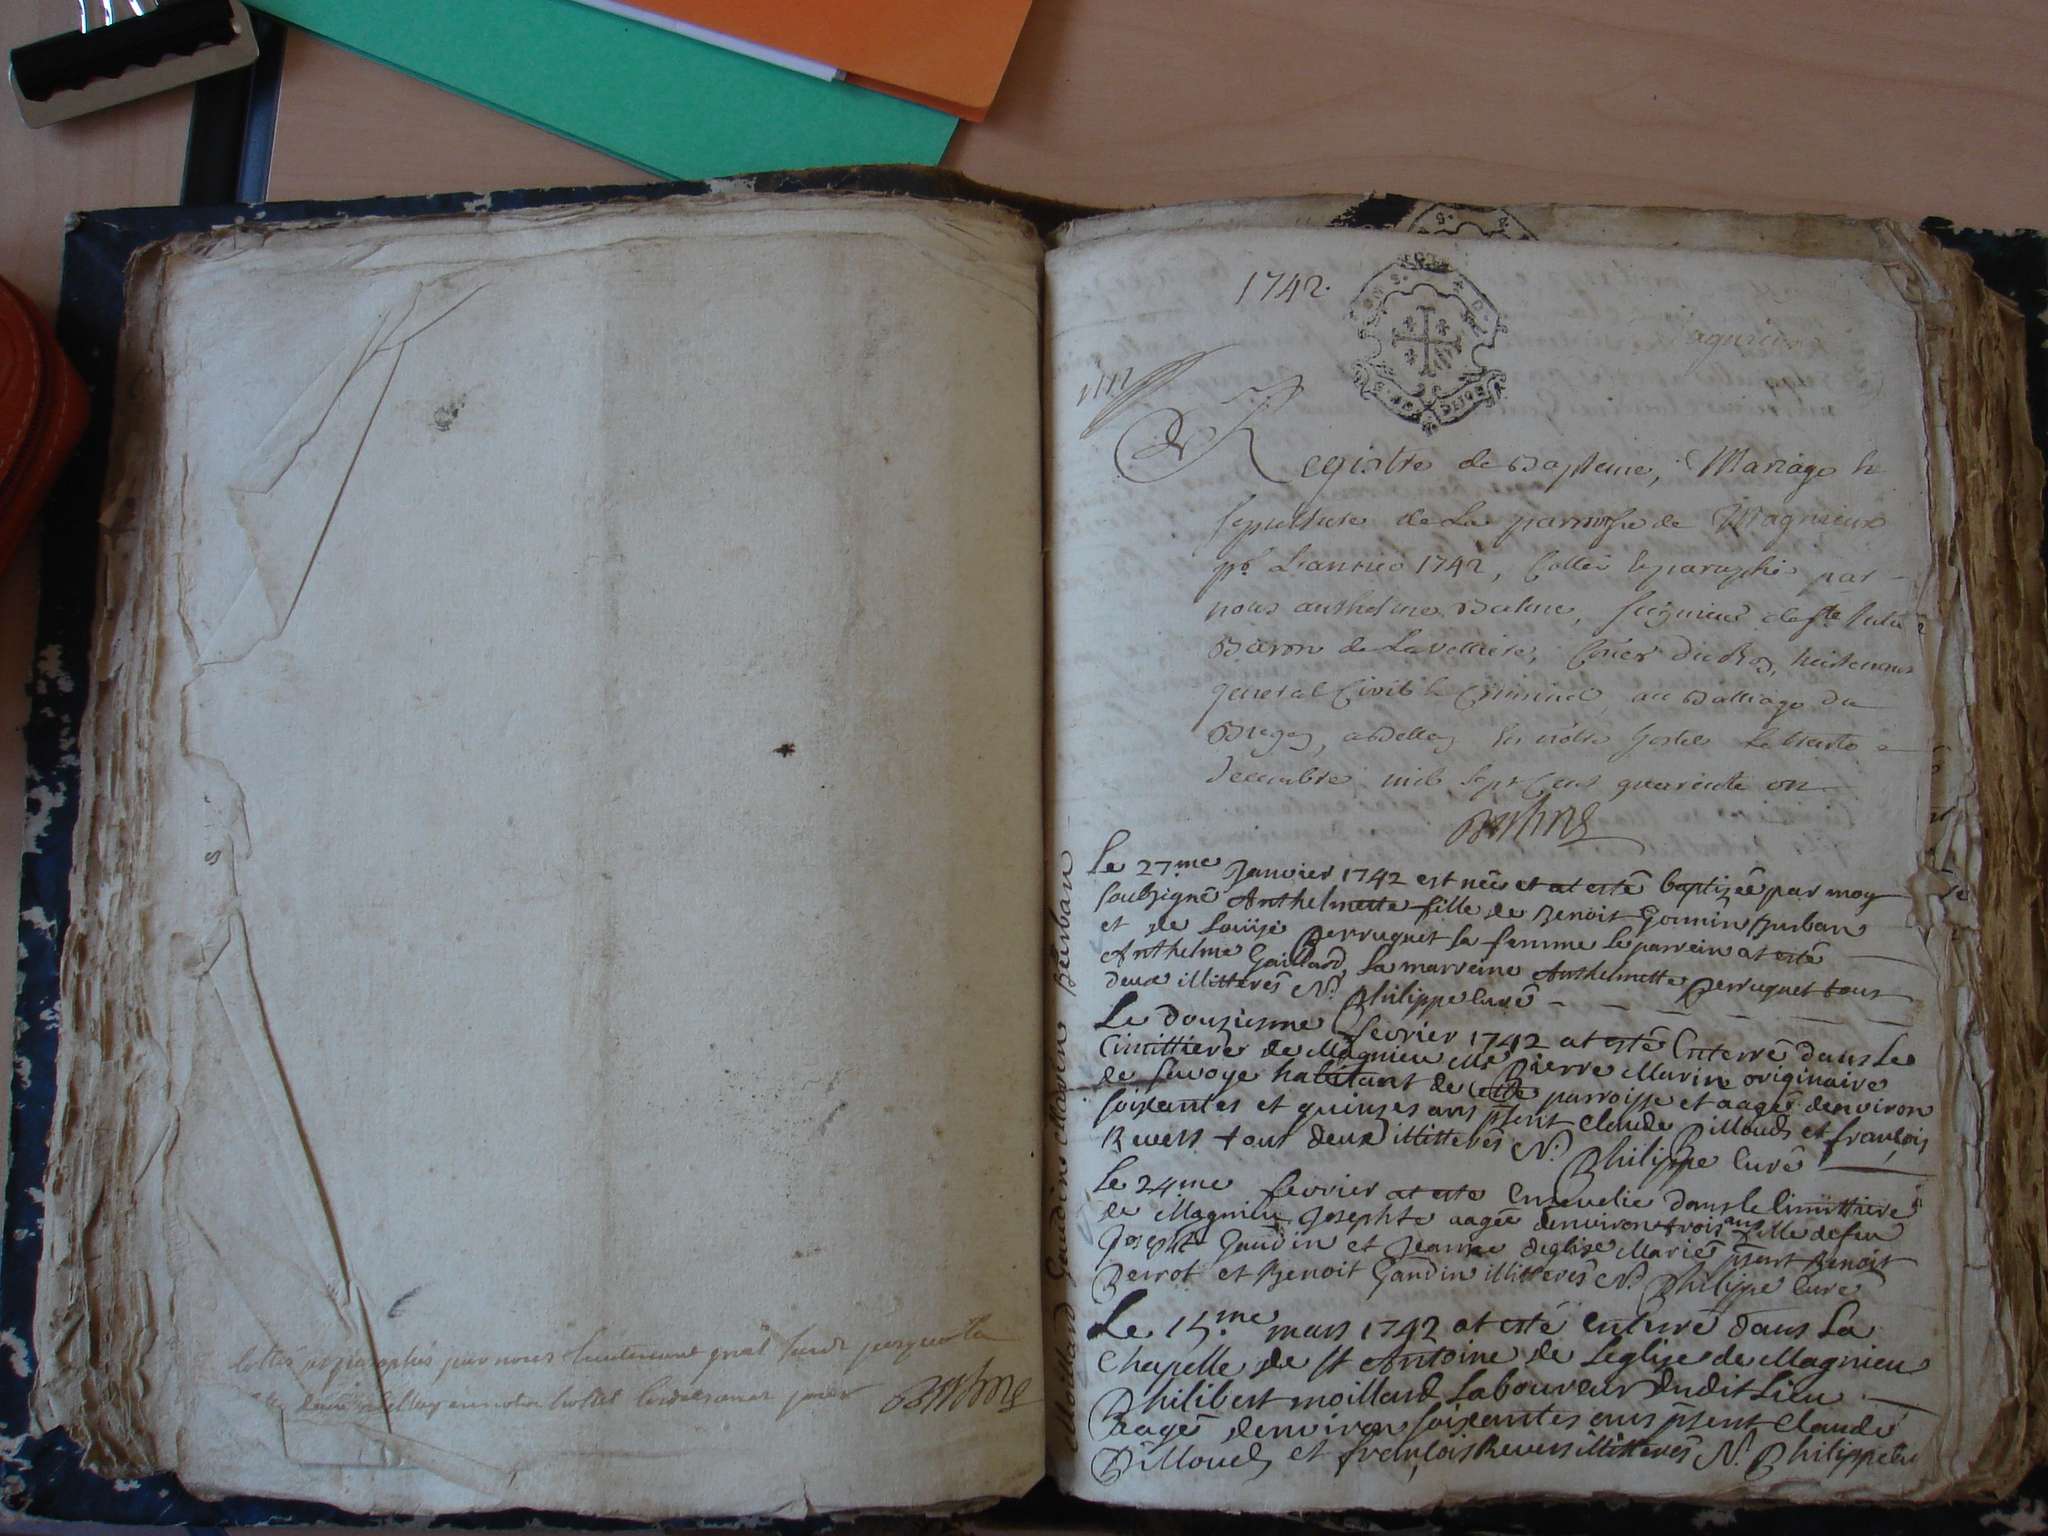 Cottés et paraphés par nous lieutenant gnal jusqua la
en notre hotel
Balme
1742.
1742
Registre de Bapteme, Mariage &
sepulture de La parroisse de Magnieux
pr. L'année 1742, Cotté & paraphé par
nous anthelme Balme, seigneur de ste Julie
Baron de La velliere, Coner du Roy, Lieutenant
general Civil & Criminel, au Balliage du
Bugey, a Belley En nôtre hostel Le trente
decembre mil sept Cent quarente un
Balme
Le 27.me Janvier 1742 est née et at esté baptizée par moy
soubsigné Anthelmette fille de Benoit Gonnin Burban
et de Loüise Perruquet sa femme le parrein at esté
Anthelme Gaillard, La marreine Anthelmette Perruquet tous
deux illitterés N. Philippe Curé
Le douziesme fevrier 1742 at esté Enterré dans Le
Cimittiere de Magnieu Me Pierre Marin originaire
de Savoye habitant de cette parroisse et aagé denviron
soixantes et quinzes ans psent Claude Billoud et françois
Revers tous deux illitterés N. Philippe Curé
Le 24me fevrier at esté Ensevelie dans le Cimittiere
de Magnieu Josephte aagée denviron trois ans fille de feu
Joseph Gaudin et Jeanne deglise Mariés psent Benoit
Perrot et Benoit Gaudin illitterés N. Philippe Curé
Le 15.me mars 1742 at esté enterré dans La
Chapelle de St Antoine de Leglise de Magnieu
Philibert moillard Laboureur dudit Lieu
aagé denviron soixantes ans psent Claude
Billoud et françois Revers illitterés N. Philippe Cu
Moillard Gaudin Marin Burban